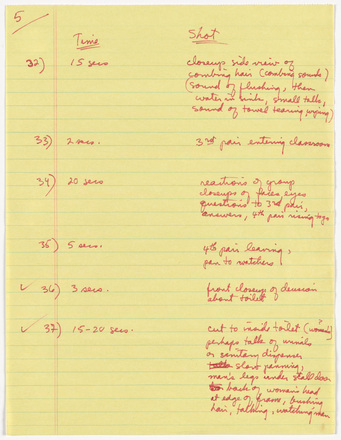 5
Time Shot
32) 15 secs closeup side view of
combing hair (combing sounds)
(sound of flushing, then
water in sink, small talk,
sound of towel tearing, wiping)
33) 2 secs. 3rd pair entering classroom
34) 20 secs reactions of group
closeups of faces, eyes
questions to 3rd pair,
answers, 4th pair rising to go
35) 5 secs. 4th pair leaving,
pan to watchers
✓ 36) 3 secs. front closeup of decision
about toilet
✓ 37) 15-20 secs. cut to inside toilet (women's)
perhaps talk of urinals
or sanitary dispenser
slow panning,
man's legs under stall door
back of woman's head
at edge of frame, brushing
hair, talking, watching man